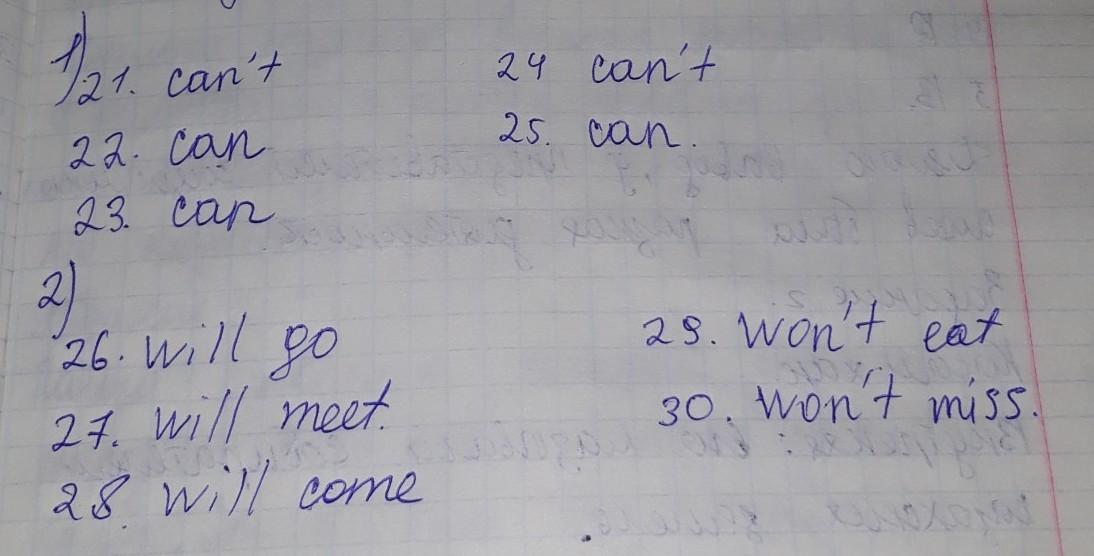 1)
21. can't
22. can
23. can
24 can't
25. can.
2)
26. will go
27. will meet.
28. will come
29. won't eat
30. won't miss.